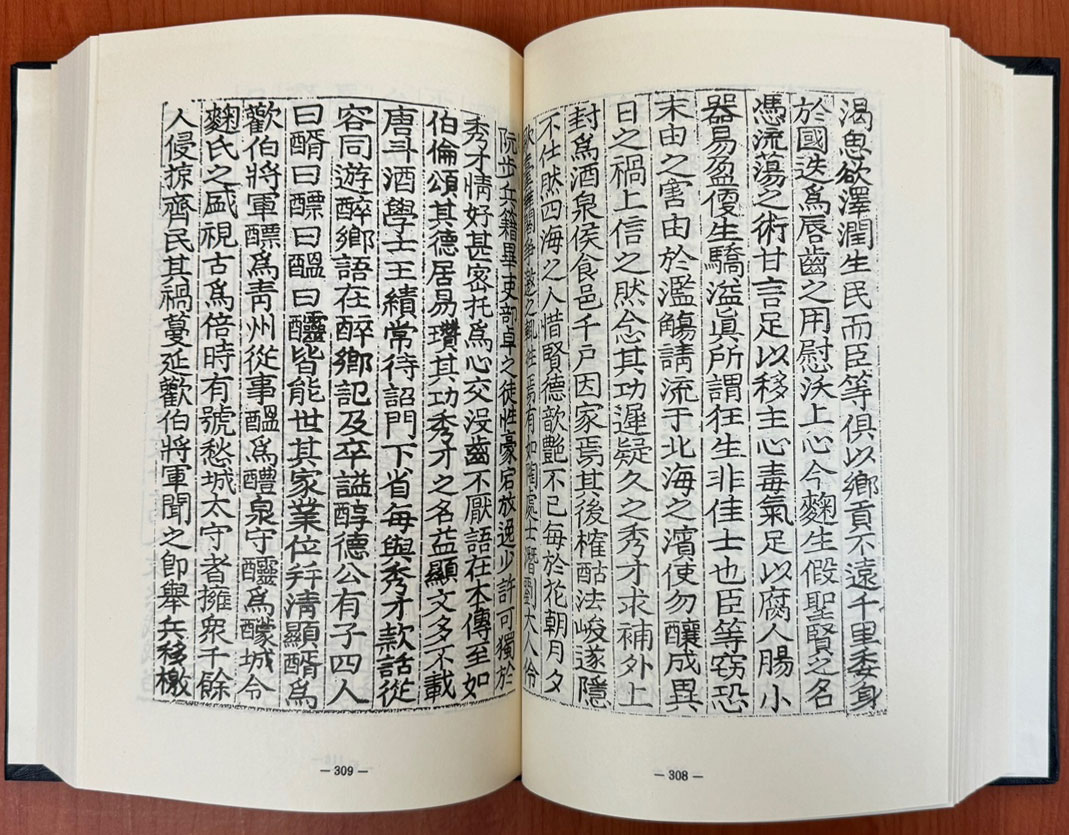 渴思欲澤潤生民而臣等俱以鄕貢不遠千里委身
於國迭爲唇齒之用慰沃上心今麴生假聖賢之名
憑流蕩之術甘言足以移主心毒氣足以腐人腸小
器易盈生驕溢眞所謂狂生非佳士也臣等窃恐
末由之害由於濫觴請流于北海之濱使勿釀成異
日之禍上信之然念其功遲疑久之秀才求補外上
封爲酒泉侯食邑千戶因家焉其後榷酤法峻遂隱
不仕然四海之人惜賢德歆艷不已每於花朝月夕
爭邀之焉有如陶處士潛劉大人伶
阮步兵籍畢吏部卓之徒性豪宕放逸少許可獨於
秀才情好甚密托爲心交沒齒不厭語在本傳至如
伯倫頌其德居易瓚其功秀才之名益顯文多不載
唐斗酒學士王績常待詔門下省每與秀才款話從
容同遊醉鄕語在醉鄕記及卒謚醇德公有子四人
曰醑曰醥曰醞曰醽皆能世其家業位幷淸顯醑爲
歡伯將軍醥爲靑州從事醞爲醴泉守醽爲城令
麴氏之盛視古爲倍時有號愁城太守者擁衆千餘
人侵掠齊民其禍蔓延歡伯將軍聞之卽擧兵移檄
— 309 —
— 308 —